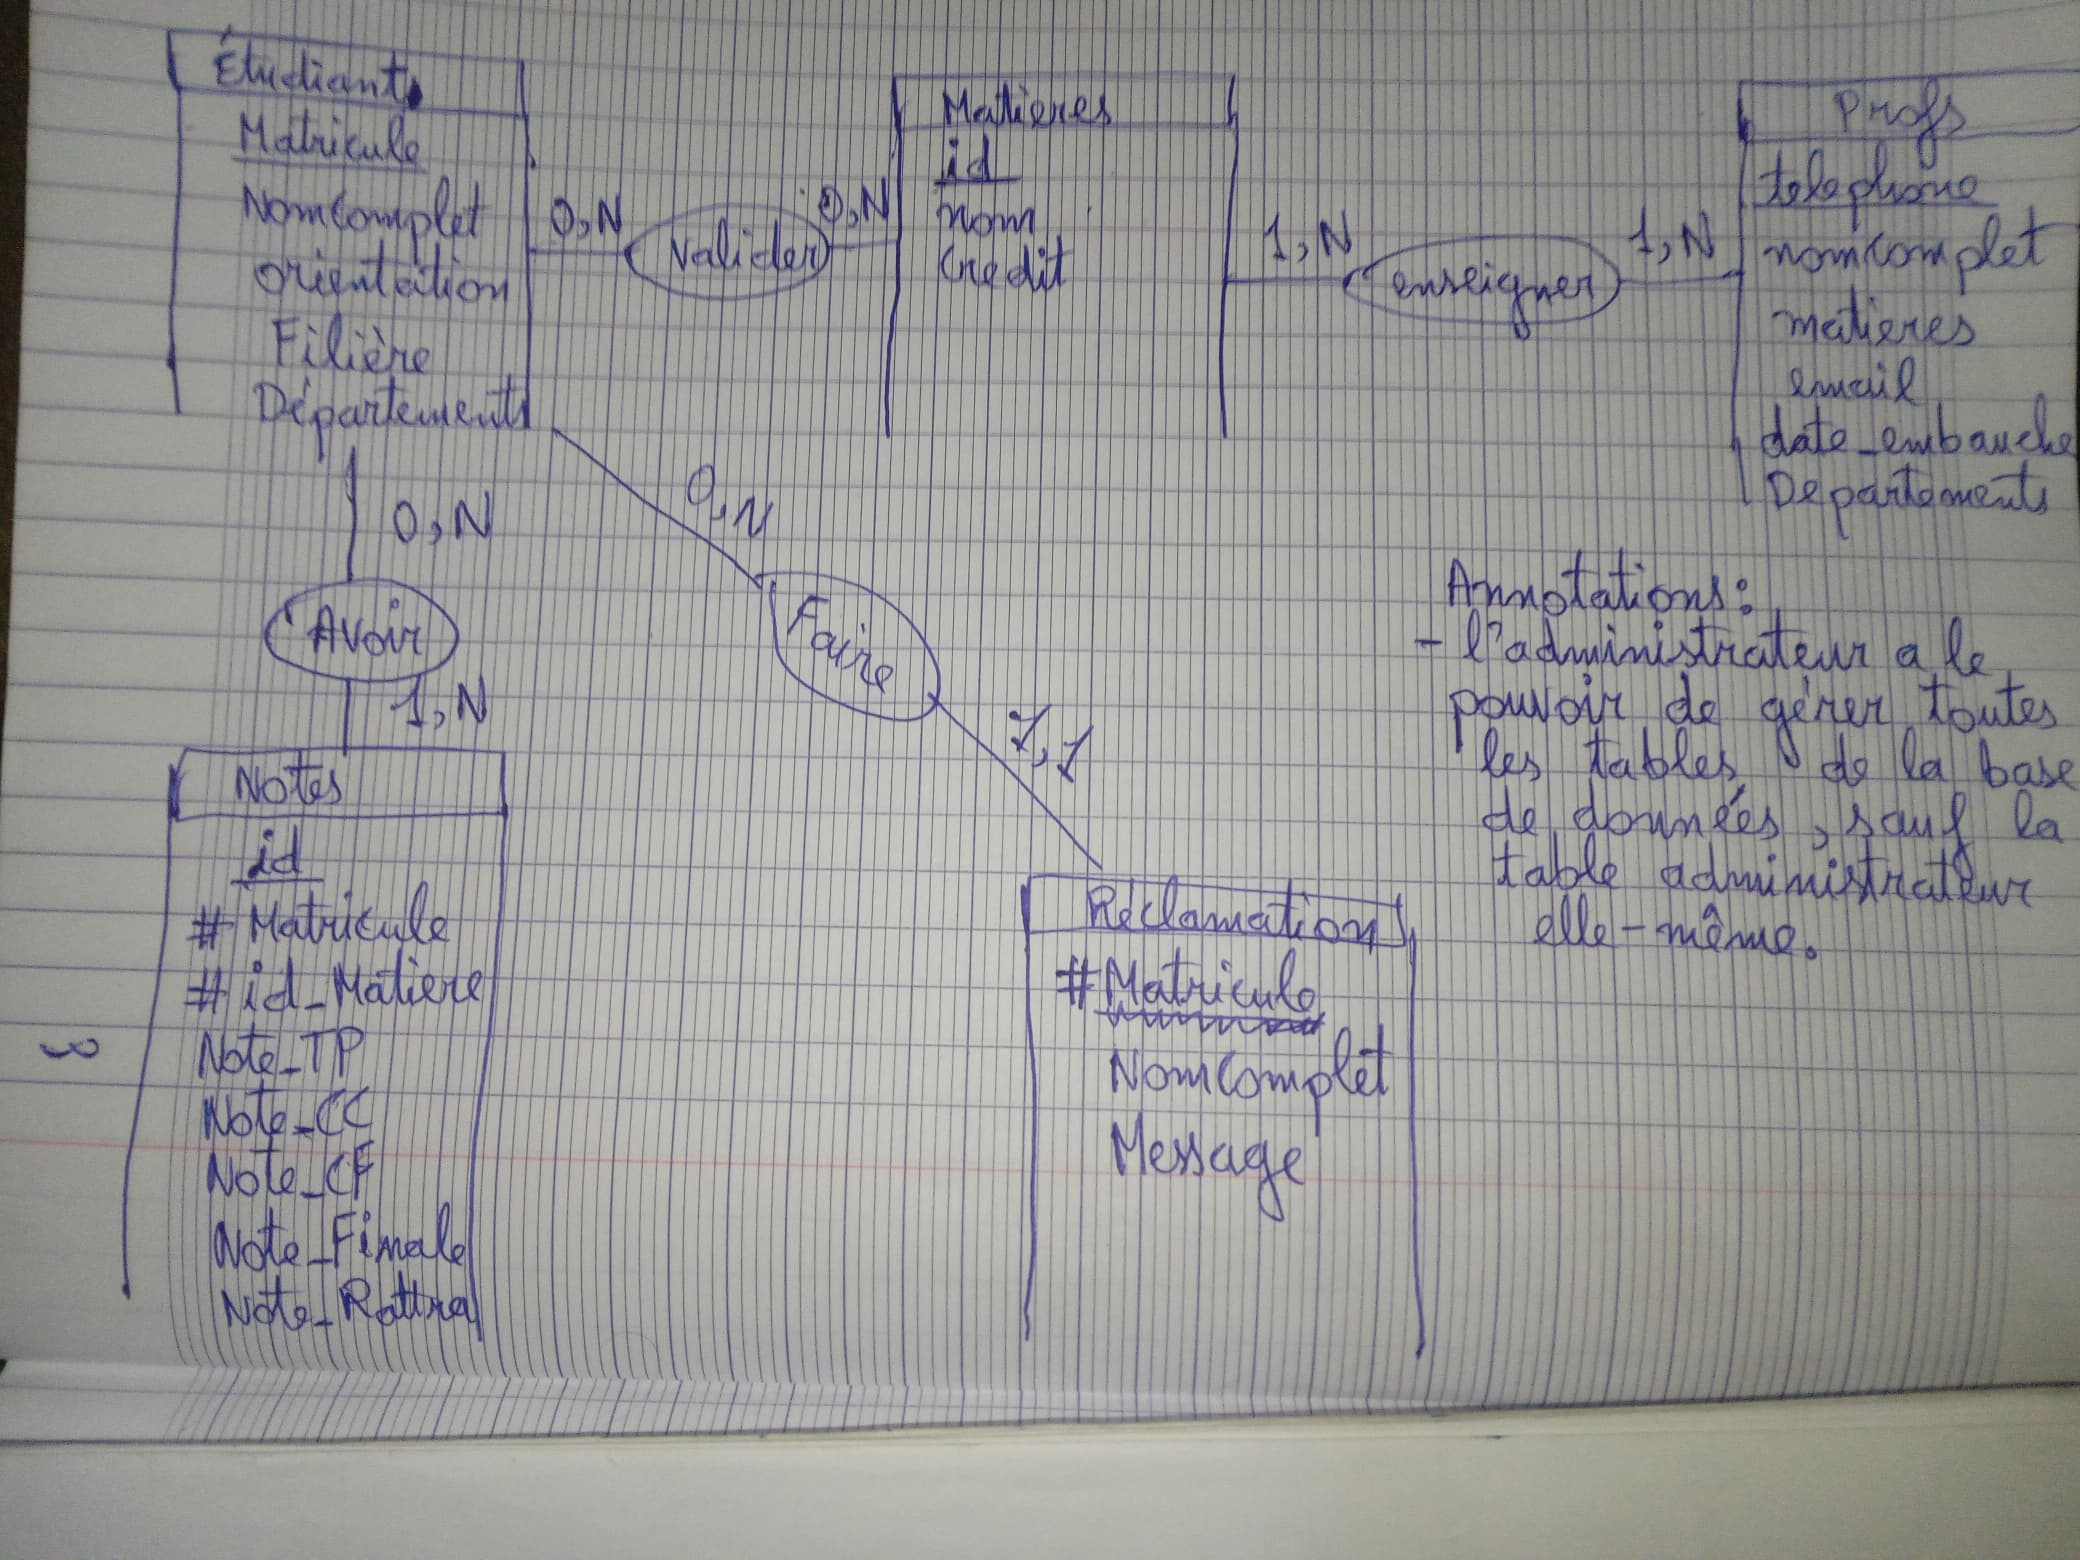 Étudiant
Matricule
NomComplet
orientation
Filière
Départements
0,N
valider
0,N
Matieres
id
nom
Credit
1,N
enseigner
1,N
Profs
telephone
nomcomplet
matieres
email
date_embauche
Departements
0,N
Avoir
1,N
0,N
Faire
1,1
Notes
id
# Matricule
# id_Matiere
Note_TP
Note_CC
Note_CF
Note_Finale
Note_Rattra
Réclamation
# Matricule
NomComplet
Message
Annotations:
- l'administrateur a le
pouvoir de gérer toutes
les tables de la base
de données, sauf la
table administrateur
elle-même.